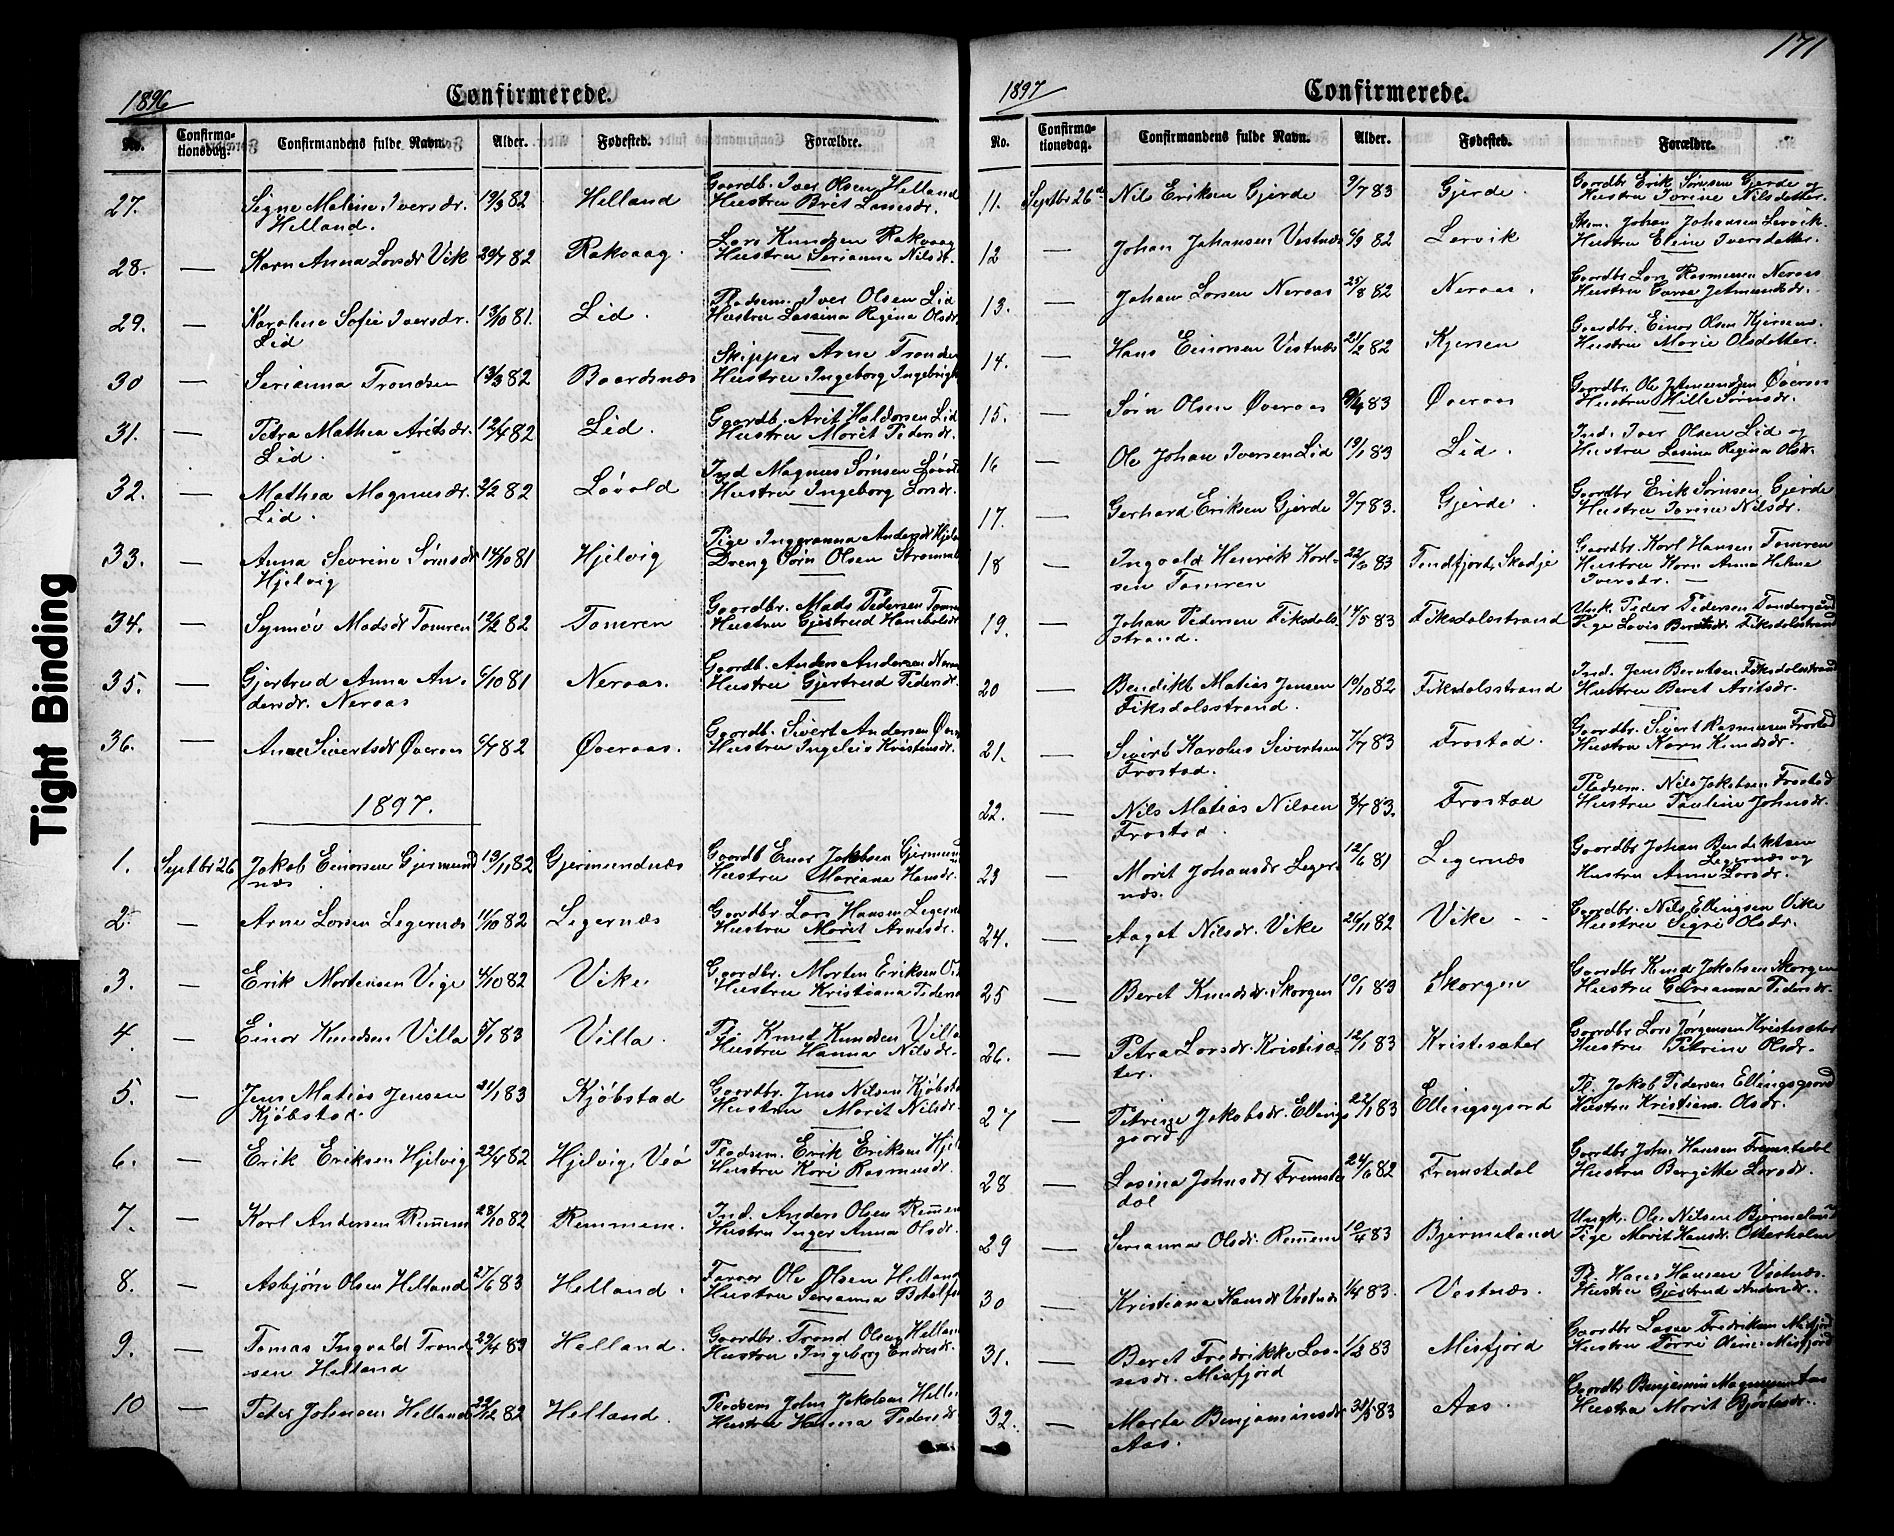 171
1896
Confirmerede.
No. Confirma-tionsdag. Confirmandens fulde Navn. Alder. Fødested. Forældre.
27. Signe Maline Iversdr. 19/3 82 Helland Gaardb. Iver Olsen Helland
Helland. Hustru Brit Larsdr.
28. — Karn Anna Larsdr Vik 29/7 82 Rakvaag. Lars Knudsen Rakvaag
Hustru Serianna Nilsdr.
29. — Karoline Sofie Iversdr. 13/10 81. Lid. Pladsem. Iver Olsen Lid
Lid Hustru Lassina Regina Olsdr.
30 — Serianna Trondsen 13/3 82 Baardsnæs Skipper Arne Trondsen
Hustru Ingeborg Ingebrigt
31. — Petra Mathea Aritsdr. 12/4 82 Lid. Gaardb. Arit Haldorsen Lid
Lid. Hustru Marit Pedersdr.
32. — Mathea Magnusdr. 2/2 82 Løvold Ind Magnus Sørnsen Løvold
Lid. Hustru Ingeborg Larsdr.
33. — Anna Severine Sørnsdr 14/10 81 Hjelvig Pige Ingeranna Andersdr Hjelv
Hjelvig Dreng Sørn Olsen
34. — Synnøv Madsdr Tomren 12/2 82 Tomren Gaardbr. Mads Pedersen Tomre
Hustru Gjertrud
35. — Gjertrud Anna An- 6/10 81 Neraas. Gaardb. Anders Andersen Neraa
dersdr. Neraas Hustru Gjertrud Pedersdr.
36. — Anne Sivertsdr Øveraas 6/7 82 Øveraas. Gaardb. Sivert Andersen Øver
Hustru Ingeleiv Kristensdr.
1897.
1. Septbr 26 Jakob Einarsen Gjermund 13/11 82 Gjermundnæs Gaardb Einar Jakobsen Gjermun
næs Hustru Mariana Hansdr.
2. — Arne Larsen Legernæs 11/10 82 Legernæs Gaardbr. Lars Hansen Legernæ
Hustru Marit Arnesdr.
3. — Erik Mortensen Vige 4/10 82 Vike Gaardbr. Morten Eriksen Vi
Hustru Kristiana Peders
4. — Einar Knudsen Villa 5/1 83 Villa. Pl. Knut Knudsen Villa
Hustru Hanna Nilsdr.
5. — Jens Matias Jensen 21/1 83 Kjøbstad Gaardbr. Jens Nilsen Kjøbsta
Kjøbstad. Hustru Marit Nilsdr.
6. — Erik Eriksen Hjelvig 22/4 82 Hjelvig, Veø Pladsem. Erik Eriksen Hjel
Hustru Kari Rasmusdr.
7. — Karl Andersen Remem 28/10 82 Remmem. Ind. Anders Olsen Remem
Hustru Inger Anna Olsdr.
8. — Asbjørn Olsen Helland 27/6 83 Helland. Farver Ole Olsen Helland
Hustru Serianna
9. — Tomas Ingvald Trond 29/4 83 Helland. Gaardbr. Trond Olsen Hellan
sen Helland Hustru Ingeborg Endresdr.
10 — Peter Johnsen Helland 29/12 82 Helland. Pladsem John Jakobsen Hella
Hustru Hanna Pedersdr
1897
Confirmerede.
No. Confirma-tionsdag. Confirmandens fulde Navn. Alder. Fødested. Forældre.
11. Septbr 26de Nils Eriksen Gjerde 9/7 83 Gjerde. Gaardbr Erik Sørnsen Gjerde og
Hustru Jorine Nilsdatter.
12 — Johan Johansen Vestnæs 6/9 82 Lervik Johan Johansen Lervik.
Hustru Eline Iversdatter.
13. — Johan Larsen Neraas 25/8 82 Neraas. Gaardbr Lars Rasmussen Neraas
Hustru Jetmundsdr.
14. — Hans Einarsen Vestnæs 21/2 82 Kjersem Gaardbr. Einar Olsen Kjersem.
Hustru Marie Olsdatter.
15. — Sørn Olsen Øveraas 9/4 83 Øveraas Gaardbr. Ole Jetmundsen Øveraas
Hustru Hille Sørnsdr.
16 — Ole Johan Iversen Lid 19/1 83 Lid. Ind. Iver Olsen Lid og
Hustru Lasina Regina Olsdr.
17. — Gerhard Eriksen Gjerde 9/7 83. Gjerde. Gaardbr Erik Sørnsen Gjerde
Hustru Jorine Nilsdr.
18 — Ingvald Henrik Karl- 22/2 83 Tundfjord, Skodje Gaardbr. Karl Hansen Tomren
sen Tomren Hustru Karn Anna Helene
Iversdr. —
19. — Johan Pedersen Fiksdals 14/5 83 Fiksdalsstrand Unk. Peder Pedersen Tøndergaard
strand. Pige Lovis Berntsdr. Fiksdalsstrand
20 — Bendikt Matias Jensen 19/10 82 Fiksdalsstrand Ind. Jens Berntsen Fiksdalsstrand
Fiksdalsstrand. Hustru Beret Aritsdr.
21. — Sivert Karolus Sivertsen 7/7 83 Frostad. Gaardbr. Sivert Rasmussen Frostad
Frostad. Hustru Karn Knudsdr.
22. — Nils Matias Nilsen 3/7 83. Frostad Pladsem. Nils Jakobsen Frostad
Frostad. Hustru Pauline Johnsdr.
23 — Marit Johansdr Leger- 12/6 81 Legernæs Gaardbr Johan Bendiktsen
næs. Legernæs og
Hustru Anne Larsdr.
24. — Aagot Nilsdr. Vike 26/11 82 Vike Gaardbr. Nils Ellingsen Vike
Hustru Sigri Olsdr.
25 — Beret Knudsdr. Skorgen 10/1 83 Skorgen Gaardbr Knud Jakobsen Skorgen
Hustru Gurianna Pedersdr.
26. — Petra Larsdr. Kristisæ- 12/1 83 Kristisæter Gaardbr Lars Jørgensen Kristisæter
ter. Hustru Petrine Olsdr.
27 — Petrine Jakobsdr. Ellings 22/1 83 Ellingsgaard Pl. Jakob Pedersen Ellingsgaard
gaard Hustru Kristiane Olsdr.
28 — Lasina Johnsdr Fremste 24/6 82 Fremstedal Gaardbr John Hansen Fremstedal
dal Hustru Bergitte Larsdr.
29 — Serianna Olsdr. Remem 10/4 83 Bjermeland Ungk. Ole Nilsen Bjermeland
Pige Marit Hansdr. Otterholm
30 — Kristiana Hansdr Vestnæs 1/4 83. Vestnæs. Pl. Hans Hansen Vestnæs.
Hustru Gjertrud Andersdr.
31. — Beret Fredrikke Las- 1/3 83 Misfjord Gaardbr Lasse Fredriksen Misfjord
sesdr. Misfjord Hustru Torre Oline Misfjord
32. — Marta Benjaminsdr 31/5 83 Aas. Gaardbr Benjamin Magnussen Aas
Aas. Hustru Marit
Tight Binding